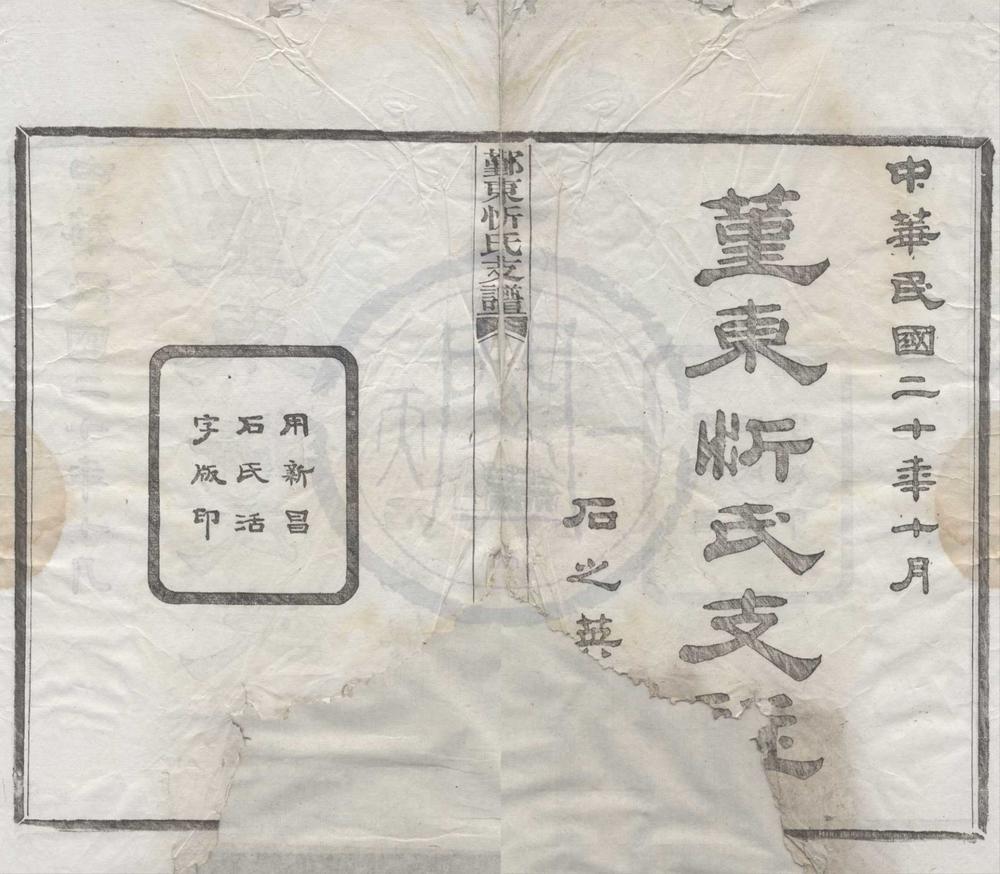 中華民國二十年十月
菫東忻氏支
石之英
鄞東忻氏支譜
用新昌
石氏活
字版印